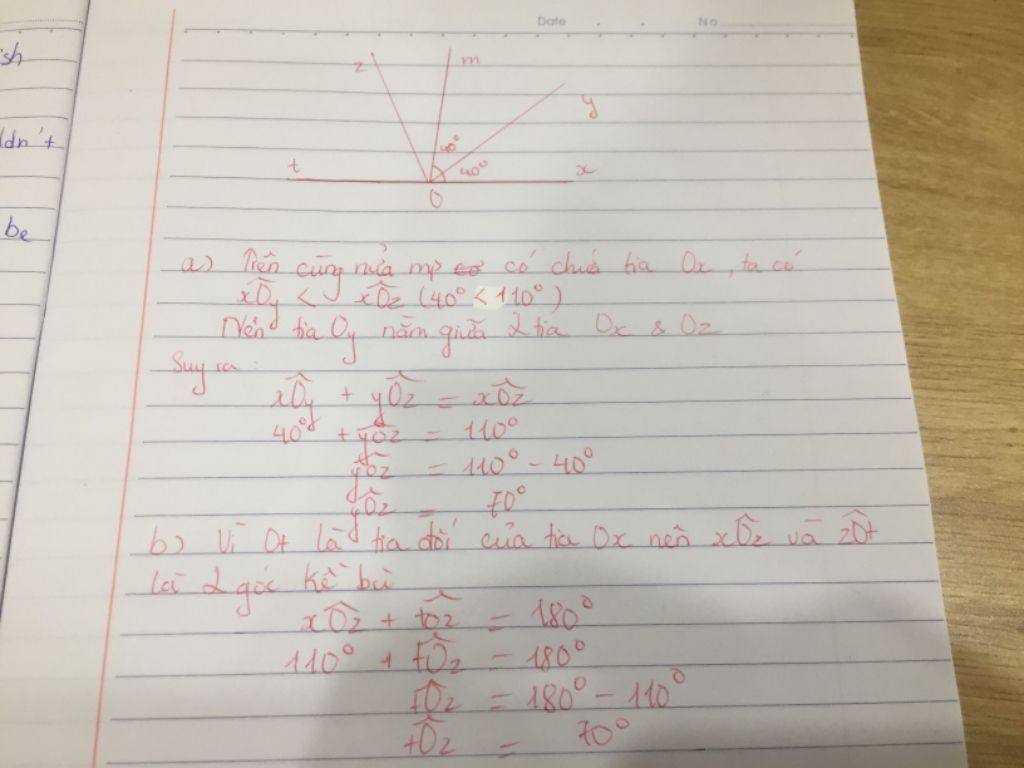 Date . . No
ish
ldn't
be
z m
y
40°
t 40° x
O
a) Trên cùng nửa mp có chứa tia Ox, ta có
xÔy < xÔz (40° < 110°)
Nên tia Oy nằm giữa 2 tia Ox & Oz
Suy ra:
xÔy + yÔz = xÔz
40° + yÔz = 110°
yÔz = 110° - 40°
yÔz = 70°
b) Vì Ot là tia đối của tia Ox nên xÔz và zÔt
là 2 góc kề bù
xÔz + tÔz = 180°
110° + tÔz = 180°
tÔz = 180° - 110°
tÔz = 70°